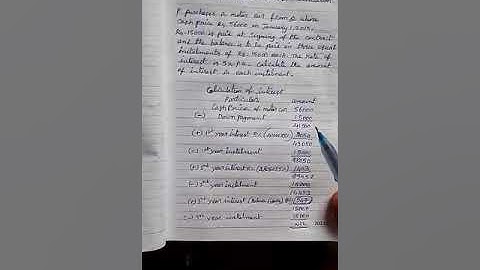 P purchases a motor car from S whose
cash price Rs. 56000 on January 1, 2015,
Rs. 15000 is paid at signing of the contract
and the balance is to be paid in three equal
instalments of Rs. 15000 each. The rate of
interest is 5% p.a. Calculate the amount
of interest in each instalment.
Calculation of interest
Particulars amount
Cash Price of motor car 56000
(-) Down payment 15000
41000
(+) 1st year interest 5% (41000) 2050
43050
(-) 1st year instalment 15000
28050
(-) 2nd year instalment 15000
(-) 3rd year instalment 15000